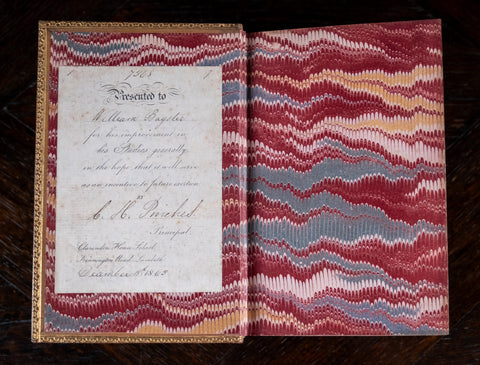 7568
Presented to
William Bayster
for his improvement in
his Studies generally
in the hope that it will serve
as an incentive to future exertion
BY
C. H. Pinches.
Principal.
Clarendon House School
Kennington Road Lambeth
December 18 1863